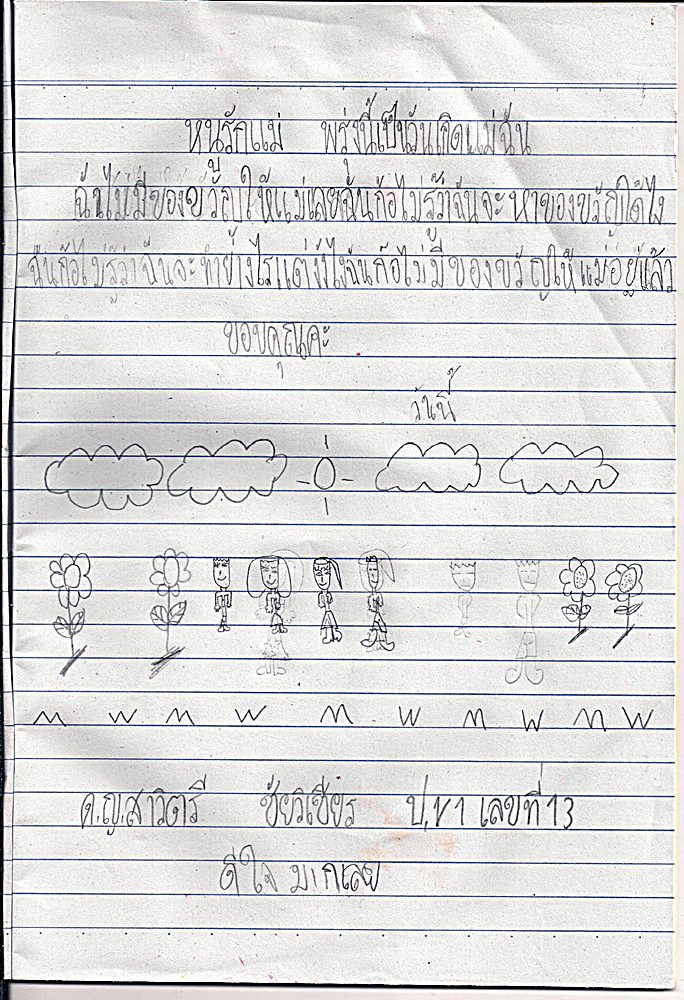 หนูรักแม่ พรุ่งนี้เป็นวันเกิดแม่ฉัน
ฉันไม่มีของขวัญให้แม่เลยฉันก้อไม่รู้ว่าฉันจะหาของขวัญได้ไง
ฉันก้อไม่รู้ว่าฉันจะทำย่างไรแต่ยังไงฉันก้อไม่มีของขวัญให้แม่อยู่แล้ว
ขอบคุณคะ
วันนี้
ด.ญ.สาวิตรี ชัยวิเชียร ป.4/1 เลขที่ 13
ดีใจมากเลย